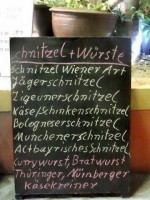 Schnitzel + Würste
Schnitzel Wiener Art
Jägerschnitzel
Zigeunerschnitzel
Käseschinkenschnitzel
Bologneserschnitzel
Münchenerschnitzel
Altbayrisches Schnitzel
Currywurst, Bratwurst
Thüringer, Nürnberger
Käsekreiner